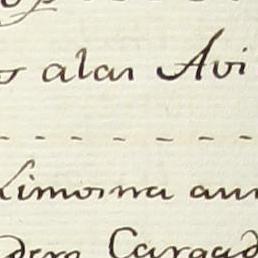 s alas Avi
- - - - - - -
Limosna ann
dem Cargad